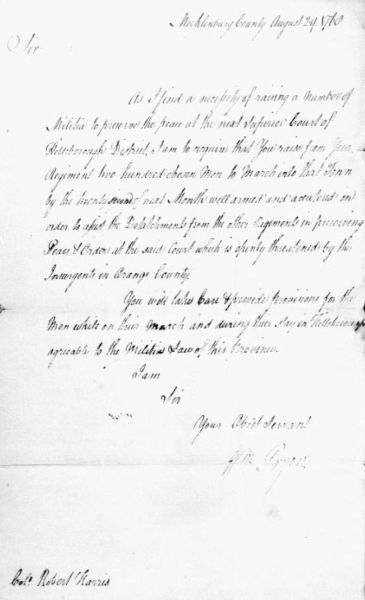 Mecklenburg County August 29, 1768
Sir
As I find a necessity of raising a Number of
Militia to preserve the peace at the next Superior Court of
Hillsborough District, I am to require that You raise from Your
Regiment two hundred chosen Men to March into that Town
by the twenty second of next Month well armed and accutred in
order to assist the Detatchments from the other Regiments in preserving
Peace & Order at the said Court which is openly threatened by the
Insurgents in Orange County.
You will take Care & provide provisions for the
Men while on their March and during their stay in Hillsborough
agreable to the Militia Law of this Province.
I am
Sir
Your Obedt Servant
Wm Tryon
Colo. Robert Harris